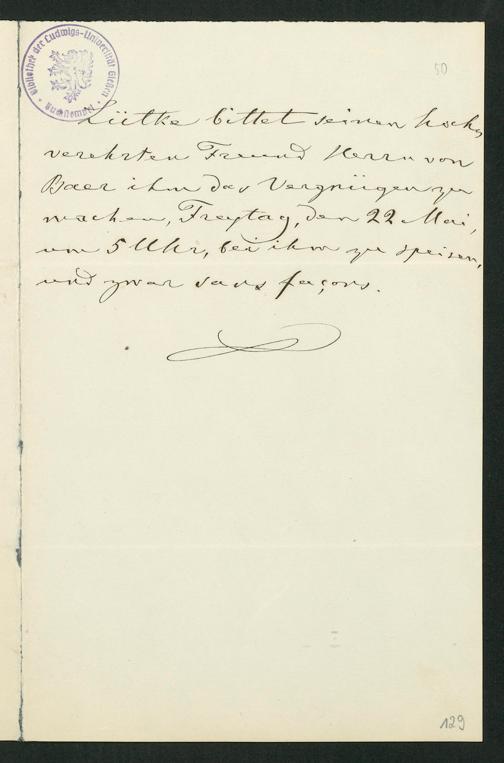 Bibliothek der Ludwigs-Universität Gießen
50
Lütke bittet seinen hoch-
verehrten Freund Herrn von
Baer ihm das Vergnügen zu
machen, Freytag, den 22 Mai,
um 5 Uhr, bei ihm zu speisen,
und zwar sans façons.
129